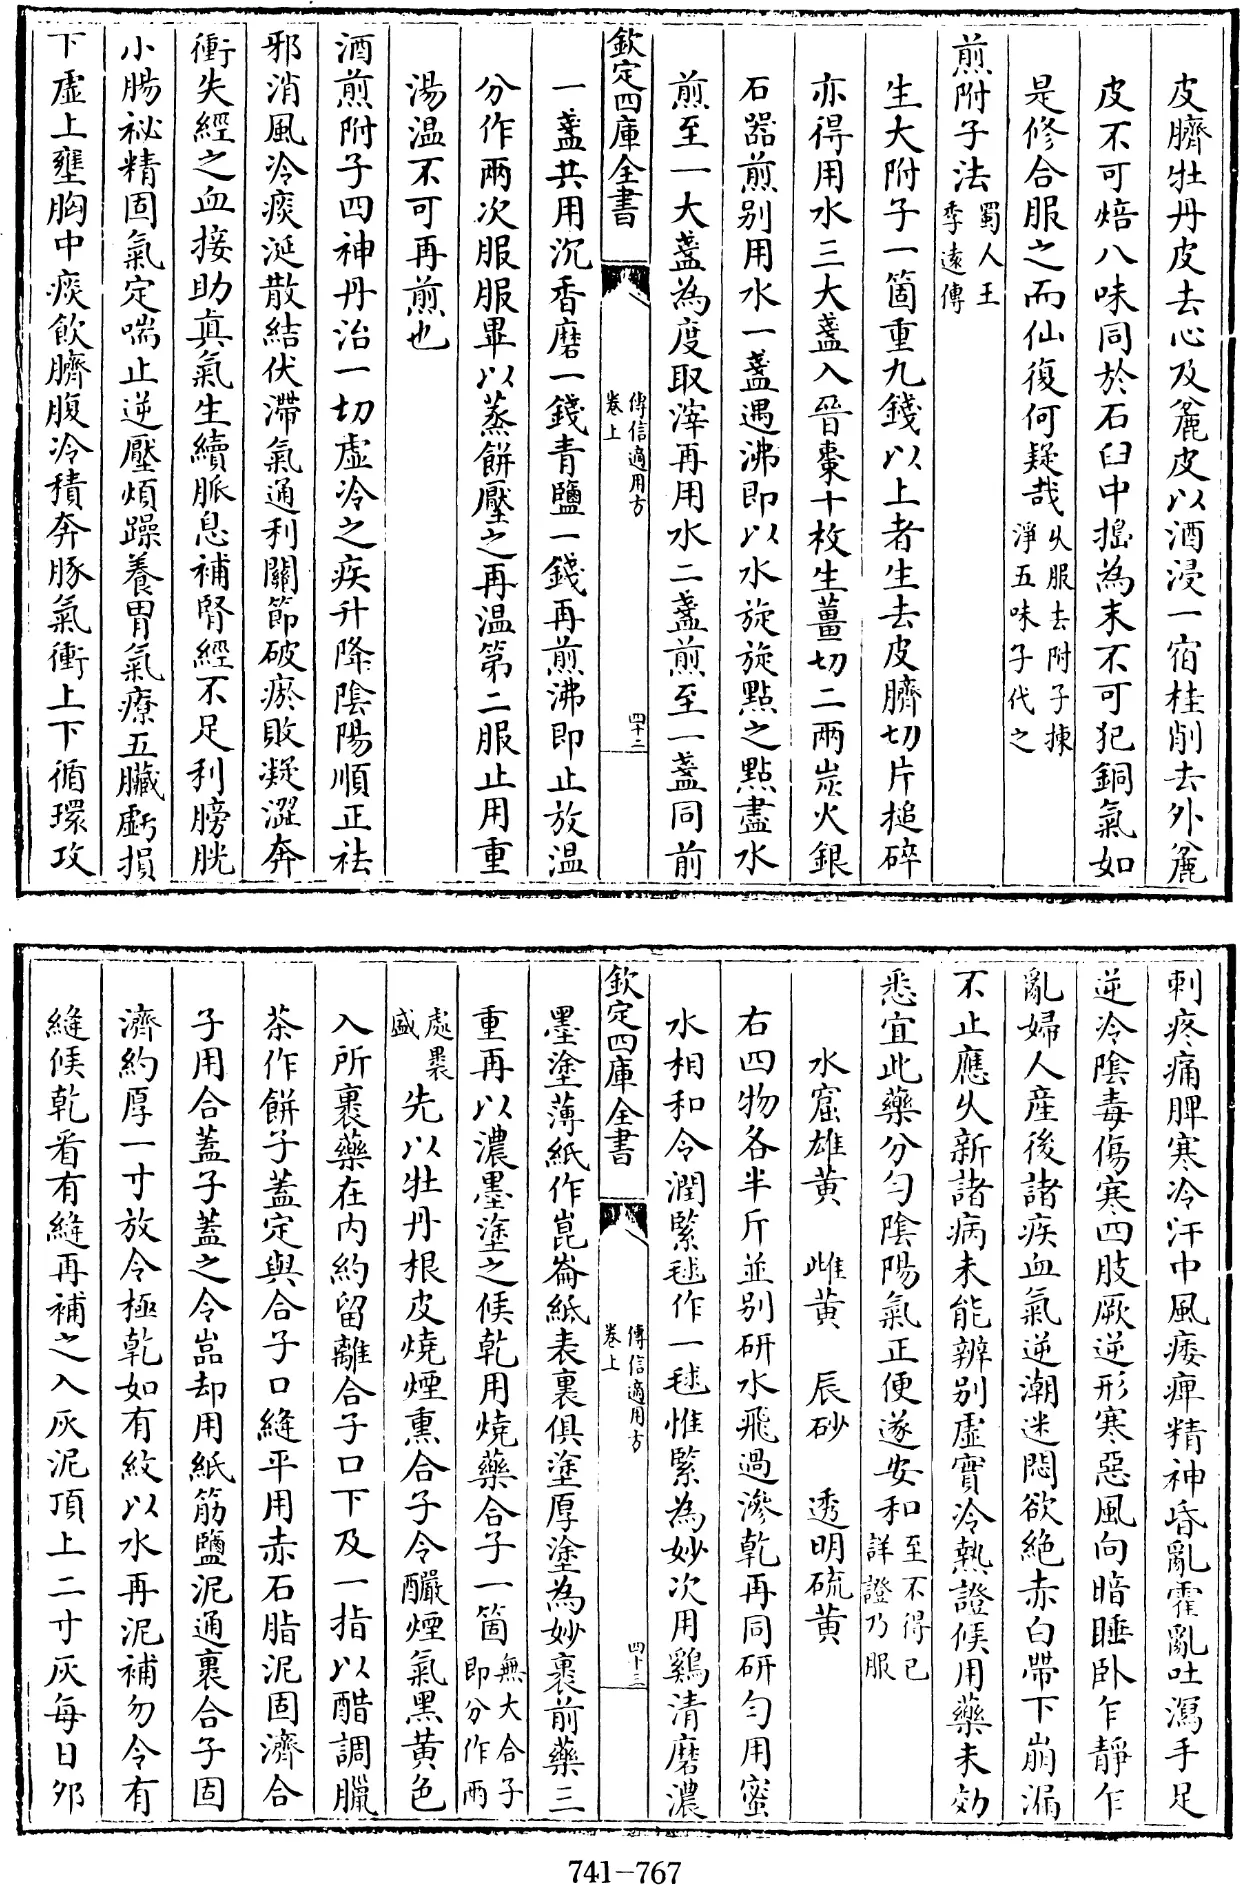 皮臍牡丹皮去心及麄皮以酒浸一宿桂削去外麄
皮不可焙八味同於石臼中搗為末不可犯銅氣如
是修合服之而仙復何疑哉乆服去附子揀淨五味子代之
煎附子法蜀人王季遠傳
生大附子一箇重九錢以上者生去皮臍切片搥碎
亦得用水三大盞入晉棗十枚生薑切二兩炭火銀
石器煎别用水一盞遇沸即以水旋旋點之點盡水
煎至一大盞為度取滓再用水二盞煎至一盞同前
欽定四庫全書
傳信適用方
卷上
四十二
一盞共用沉香磨一錢青鹽一錢再煎沸即止放温
分作兩次服服畢以蒸餅壓之再温第二服止用重
湯温不可再煎也
酒煎附子四神丹治一切虚冷之疾升降陰陽順正祛
邪消風冷痰涎散結伏滯氣通利關節破瘀敗凝澀奔
衝失經之血接助真氣生續脈息補腎經不足利膀胱
小腸祕精固氣定喘止逆壓煩躁養胃氣療五臟虧損
下虚上壅胸中痰飲臍腹冷積奔豚氣衝上下循環攻
刺疼痛脾寒冷汗中風痿痺精神昏亂霍亂吐瀉手足
逆冷陰毒傷寒四肢厥逆形寒惡風向暗睡卧乍靜乍
亂婦人産後諸疾血氣逆潮迷悶欲絶赤白帶下崩漏
不止應乆新諸病未能辨别虚實冷熱證候用藥未効
悉宜此藥分勻陰陽氣正便遂安和至不得已詳證乃服
水窟雄黄 雌黄 辰砂 透明硫黄
右四物各半斤並别研水飛過滲乾再同研勻用蜜
水相和令潤緊毬作一毬惟緊為妙次用鷄清磨濃
欽定四庫全書
傳信適用方
卷上
四十三
墨塗薄紙作崑崙紙表裏俱塗厚塗為妙裏前藥三
重再以濃墨塗之候乾用燒藥合子一箇無大合子即分作兩
處裹盛先以牡丹根皮燒煙熏合子令釅煙氣黑黄色
入所裹藥在内約留離合子口下及一指以醋調臘
茶作餅子蓋定與合子口縫平用赤石脂泥固濟合
子用合蓋子蓋之令㗊却用紙筋鹽泥通裹合子固
濟約厚一寸放令極乾如有紋以水再泥補勿令有
縫候乾看有縫再補之入灰泥頂上二寸灰每日夘
741-767